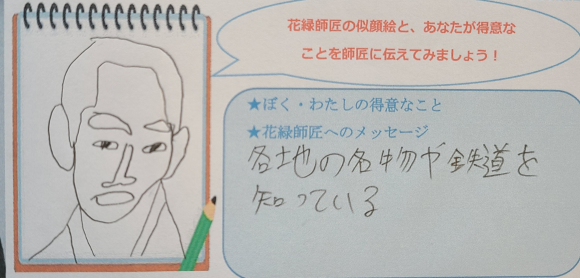 花緑師匠の似顔絵と、あなたが得意な
ことを師匠に伝えてみましょう！
★ぼく・わたしの得意なこと
★花緑師匠へのメッセージ
各地の名物や鉄道を
知っている